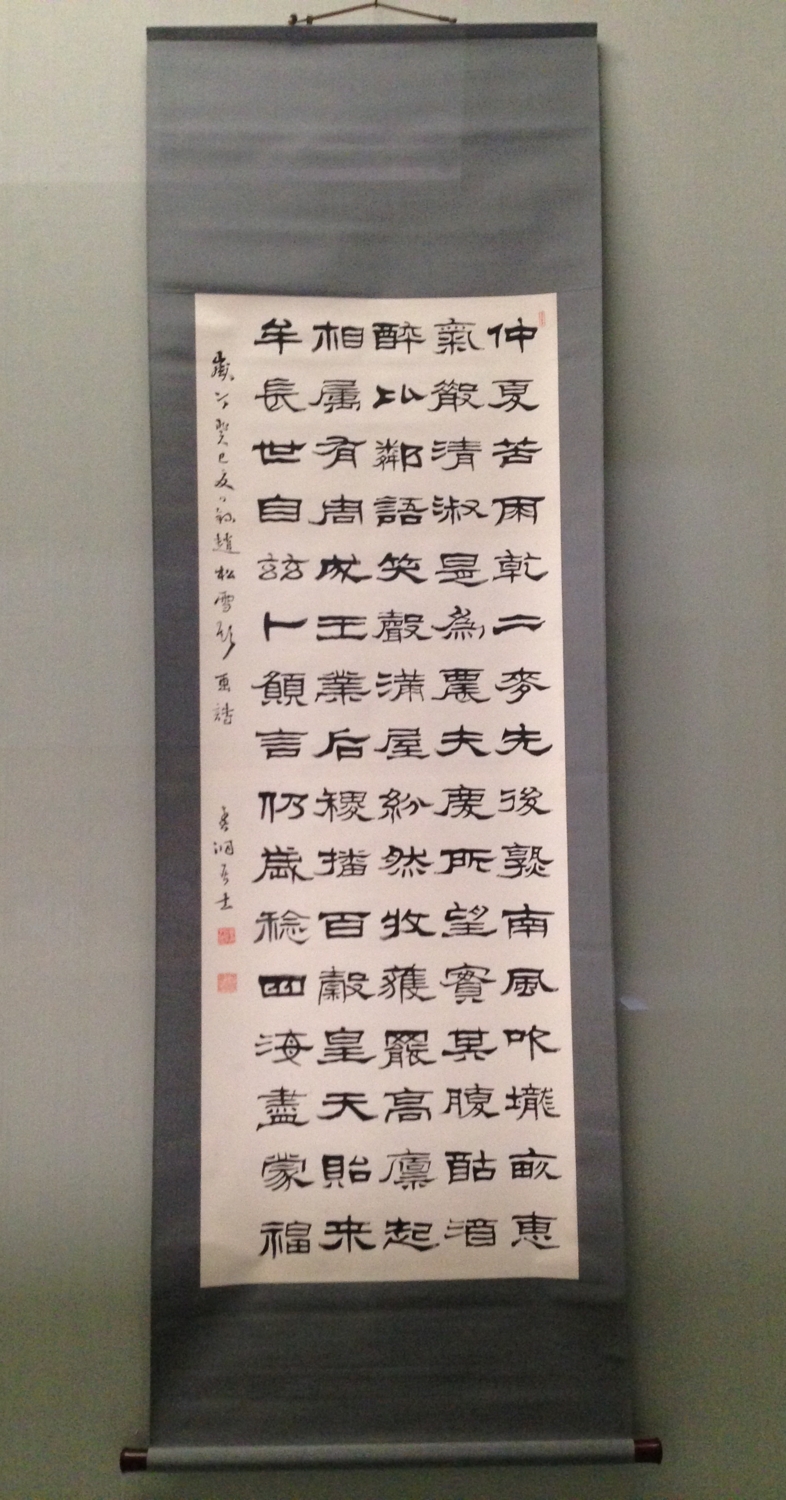 仲夏苦雨乾二麥先後熟南風吹壠畝惠
氣散清淑是爲農夫慶所望實其腹酤酒
醉比鄰語笑聲滿屋紛然收穫罷高廩起
相属有周成王業后稷播百穀皇天貽来
牟長世自茲卜願言仍歲稔四海盡蒙福
歲癸巳夏日錄趙松雪詩
居士